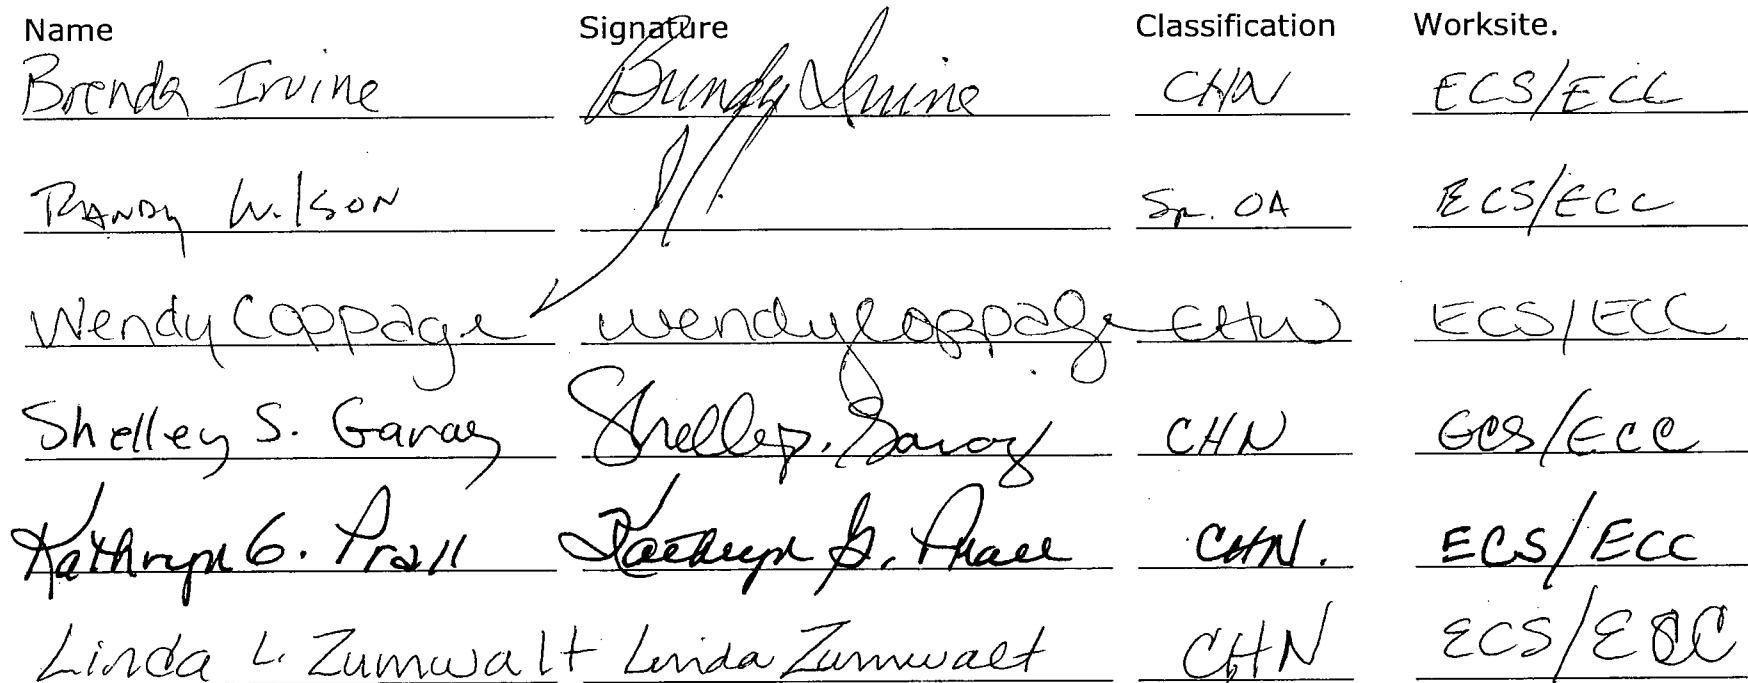 Name Signature Classification Worksite.
Brenda Irvine Brenda Irvine CHN ECS/ECC
Randy Wilson Sr. OA ECS/ECC
Wendy Coppage Wendy Coppage CHW ECS/ECC
Shelley S. Garay Shelley S. Garay CHN ECS/ECC
Kathryn G. Prall Kathryn G. Prall CHN. ECS/ECC
Linda L. Zumwalt Linda Zumwalt CHN ECS/ECC